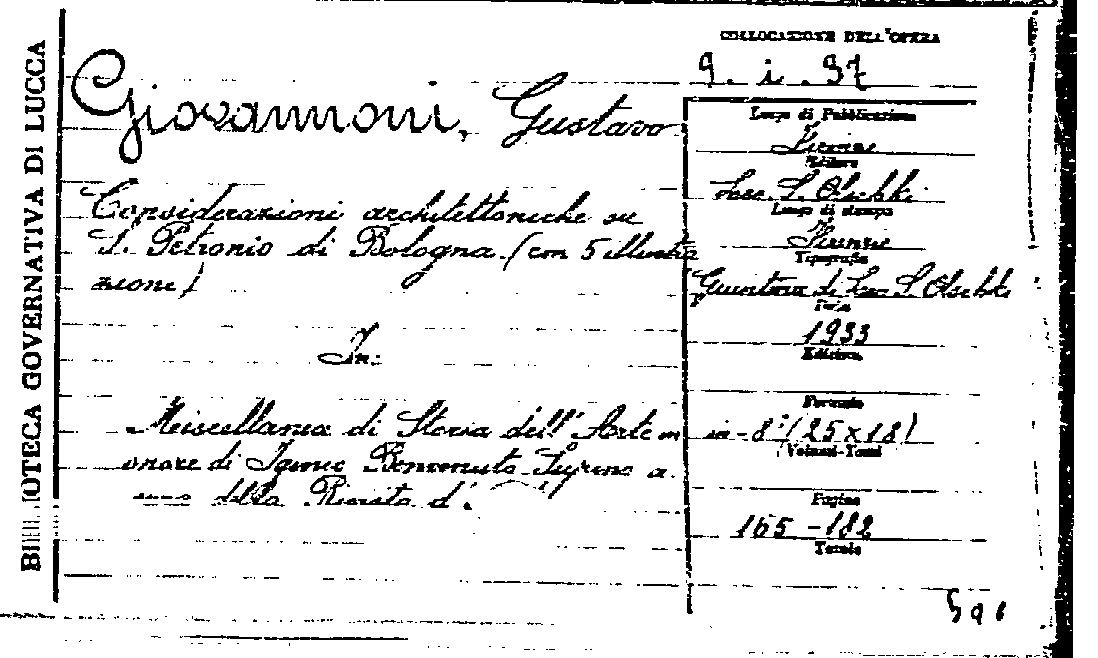 BIBLIOTECA GOVERNATIVA DI LUCCA
COLLOCAZIONE DELL'OPERA
9. i. 37
Giovannoni, Gustavo
Considerazioni architettoniche su
S. Petronio di Bologna (con 5 illustra
zione)
In:
Miscellanea di Storia dell'Arte in
onore di Igino Benvenuto Supino a
della Rivista d'
Luogo di Pubblicazione
Firenze
Editore
Leo S. Olschki
Luogo di stampa
Firenze
Tipografia
Giuntina di Leo S. Olschki
Data
1933
Edizione
Formato
in-8° (25x18)
Volumi-Tomi
Pagine
165-182
Tavole